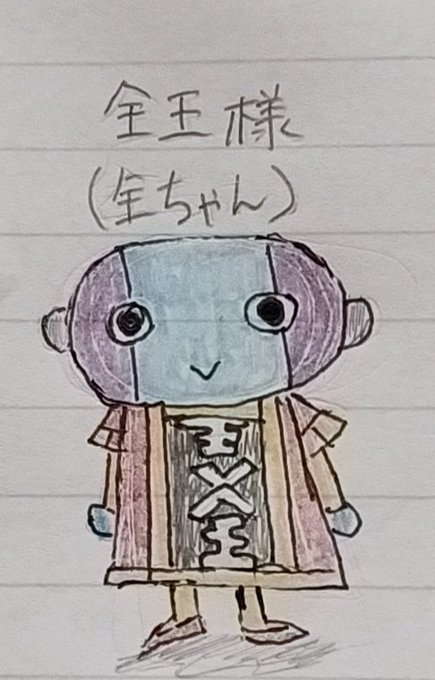 全王様
(全ちゃん)